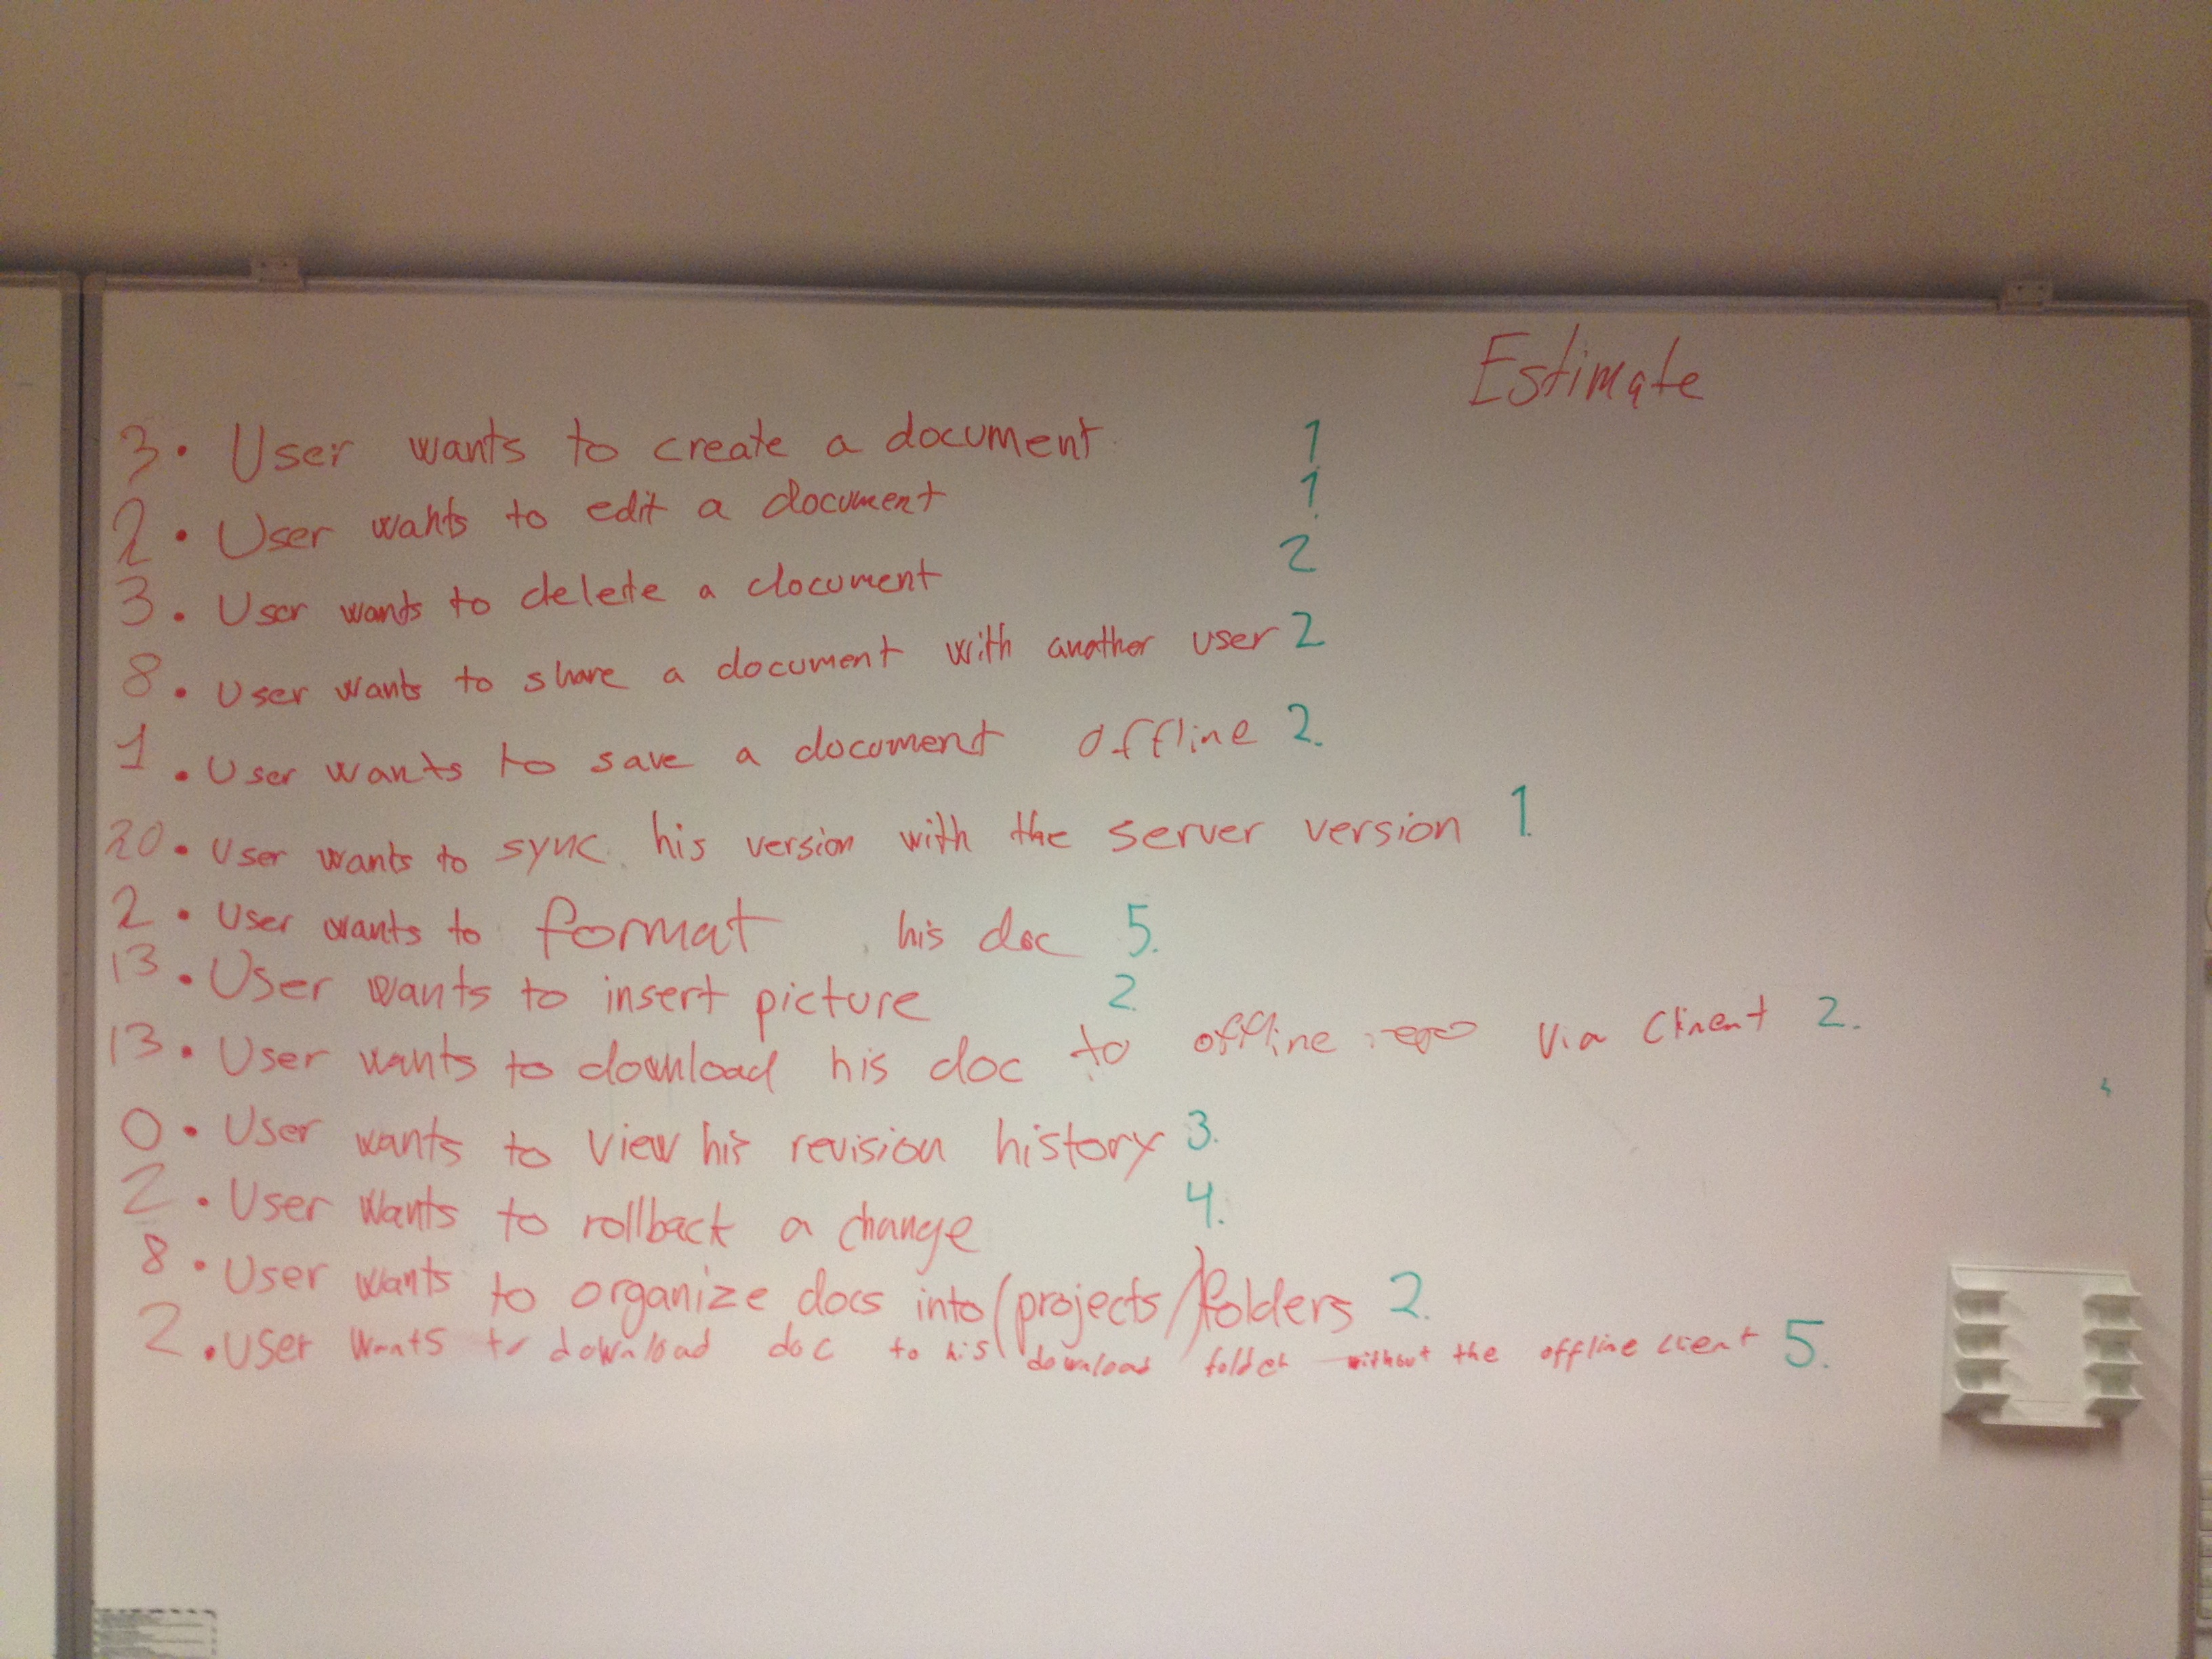 Estimate
3. User wants to create a document 1
2. User wants to edit a document 1.
3. User wants to delete a document 2
8. User wants to share a document with another user 2
1. User wants to save a document offline 2.
20. User wants to sync his version with the server version 1.
2. User wants to format his doc 5.
13. User wants to insert picture 2
13. User wants to download his doc to offline repo via Clinent 2.
0. User wants to view his revision history 3.
2. User wants to rollback a change 4.
8. User wants to organize docs into (projects/) folders 2.
2. User wants to download doc to his download folder without the offline client 5.